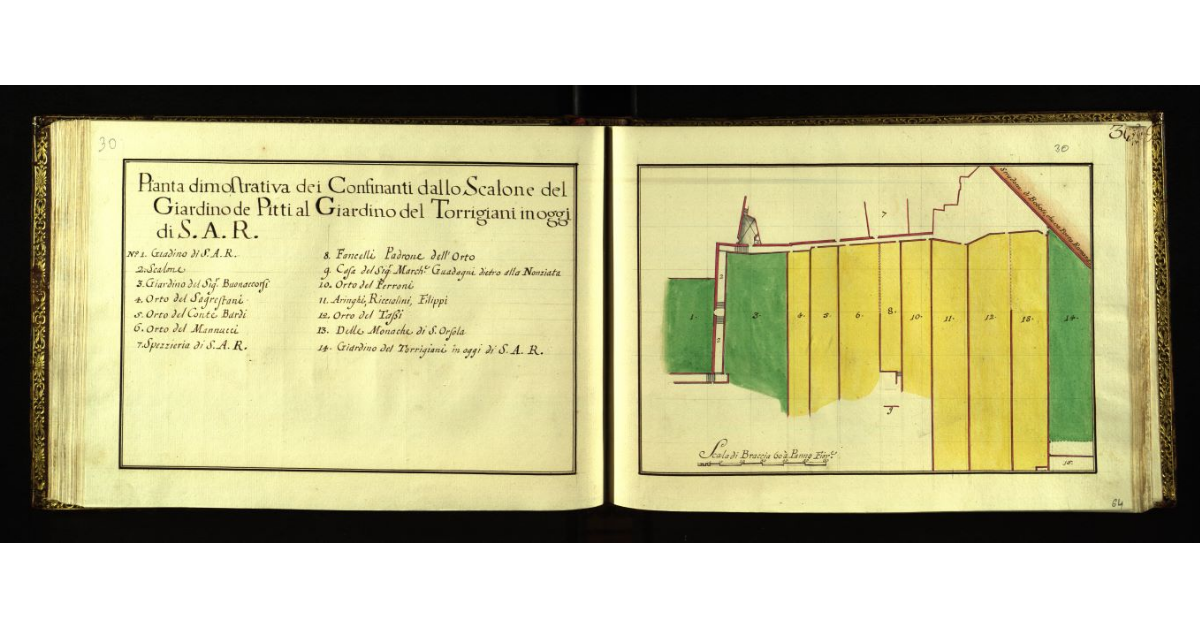 30
Pianta dimostrativa dei Confinanti dallo Scalone del
Giardino de Pitti al Giardino del Torrigiani in oggi
di S. A. R.
Nº 1. Giadino di S. A. R.
2. Scalone
3. Giardino del Sigr. Buonaccorsi
4. Orto del Sagrestani
5. Orto del Conte Bardi
6. Orto del Mannucci
7. Spezzieria di S. A. R.
8. Fancelli Padrone dell'Orto
9. Casa del Sigr. Marche. Guadagni dietro alla Nonziata
10. Orto del Perroni
11. Aringhi, Ricciolini, Filippi
12. Orto del Tassi
13. Delle Monache di S. Orsola
14. Giardino del Torrigiani in oggi di S. A. R.
30
7
1. 2 3. 4. 5. 6. 8. 10. 11. 12. 13. 14.
2
9
Scala di Braccia 60 a Panno Fiore.
10.
64